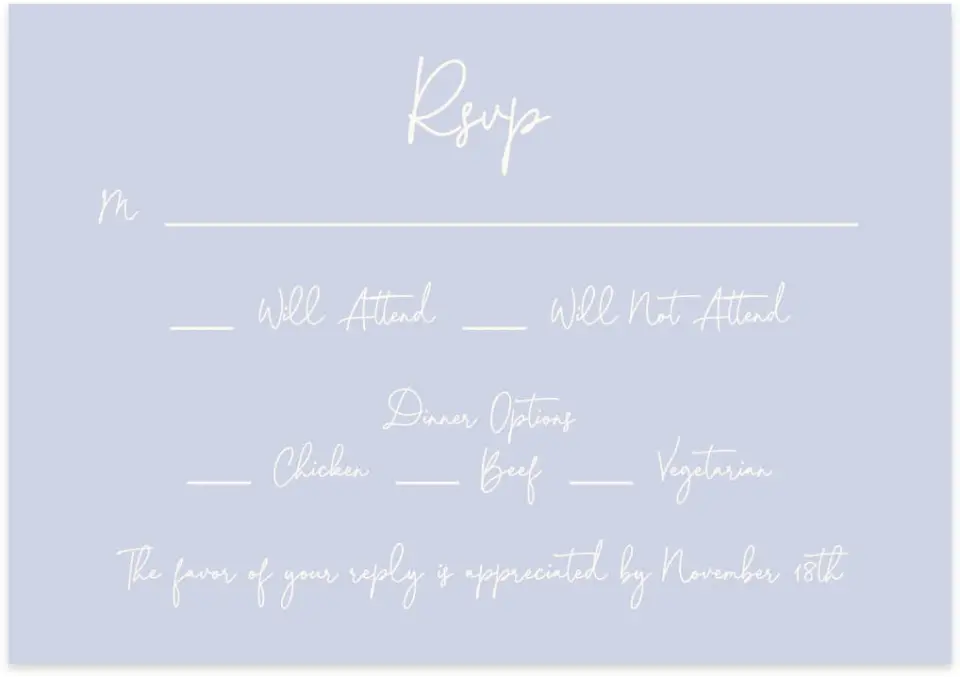 Rsvp
M
Will Attend Will Not Attend
Dinner Options
Chicken Beef Vegetarian
The favor of your reply is appreciated by November 18th